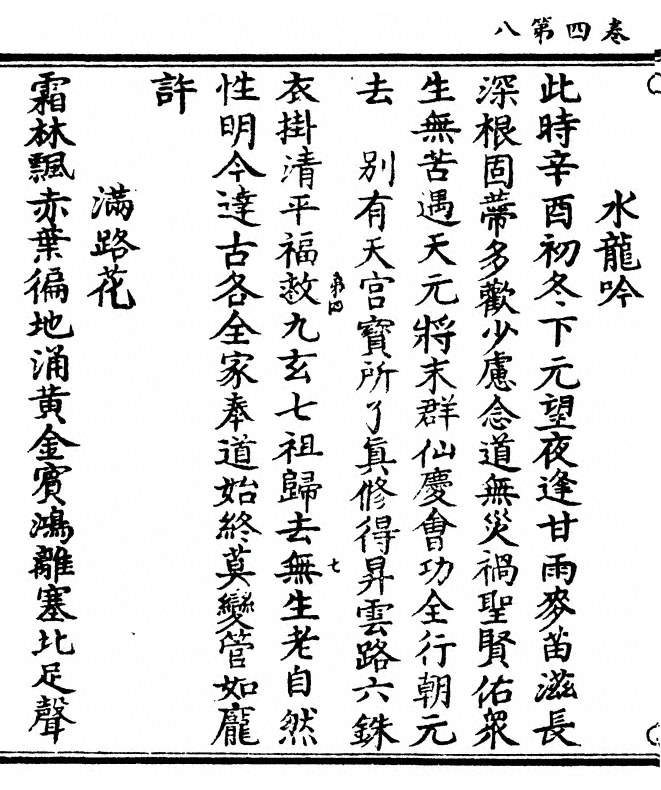 卷四第八
水龍吟
此時辛酉初冬下元望夜逢甘雨麥苗滋長
深根固蔕多歡少慮念道無災禍聖賢佑衆
生無苦遇天元將末群仙慶會功全行朝元
去　別有天宫寳所了真修得昇雲路六銖
衣掛清平福㪟九玄七祖歸去無生老自然
第四
七
性明今達古各全家奉道始終莫變管如龐
許
滿路花
霜林飄赤葉徧地涌黄金賓鴻離塞北足聲